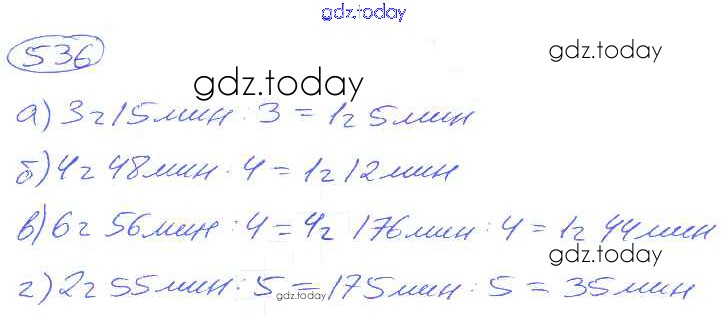 gdz.today
536
gdz.today
gdz.today
а) 3ч 15мин : 3 = 1ч 5мин
б) 4ч 48мин : 4 = 1ч 12мин
в) 6ч 56мин : 4 = 4ч 176мин : 4 = 1ч 44мин
gdz.today
г) 2ч 55мин : 5 = 175мин : 5 = 35мин
gdz.today